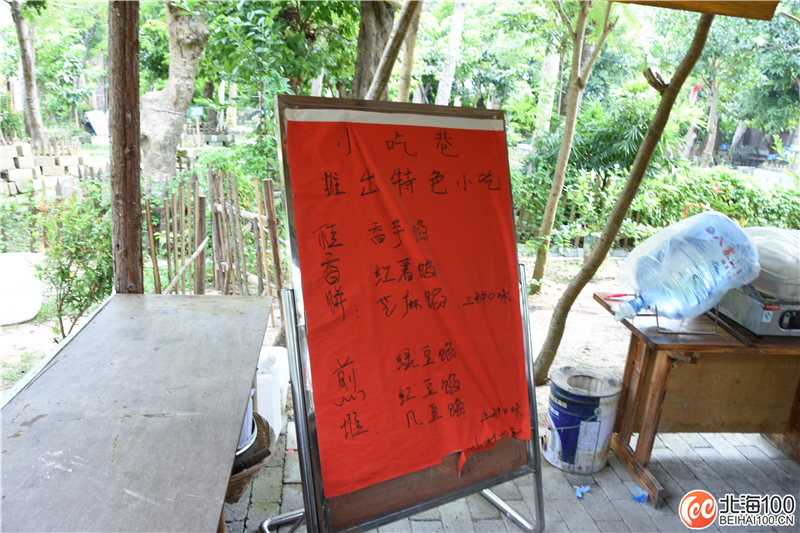 小吃巷
推出特色小吃
桂 香芋馅
香 红薯馅
饼：芝麻馅 三种口味
煎 绿豆馅
红豆馅
堆 凡豆馅 三种口味
北海100
BEIHAI100.CN